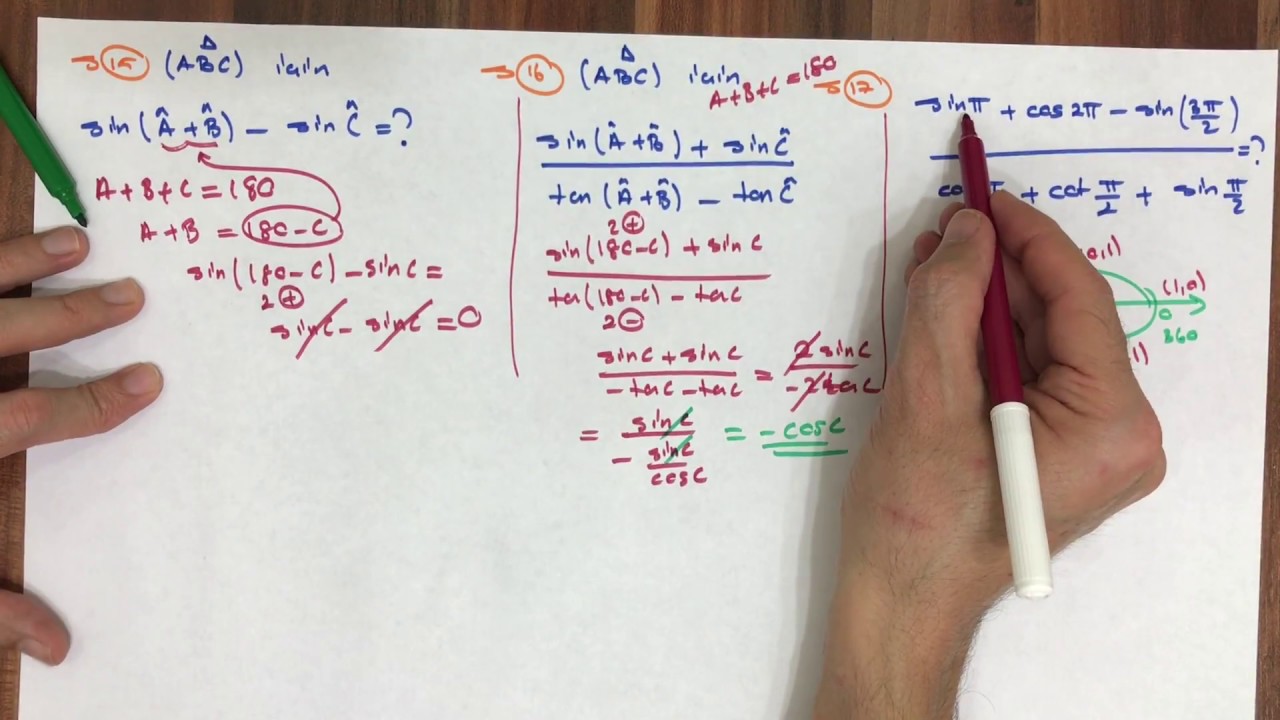 → 15 (ABC) için
sin(Â + B̂) − sin Ĉ = ?
A + B + C = 180
A + B = 180 − C
sin(180 − C) − sin C =
2 +
sinC − sinC = 0
→ 16 (ABC) için
A + B + C = 180
sin(Â + B̂) + sin Ĉ
tan(Â + B̂) − tan Ĉ
2 +
sin(180 − C) + sin C
tan(180 − C) − tan C
2 −
sinC + sinC = 2 sinC
− tanC − tanC − 2 tanC
= sinC = − cosC
− sinC
cosC
→ 17
sinπ + cos 2π − sin(3π/2)
= ?
+ cot π/2 + sin π/2
(1,0)
0
360